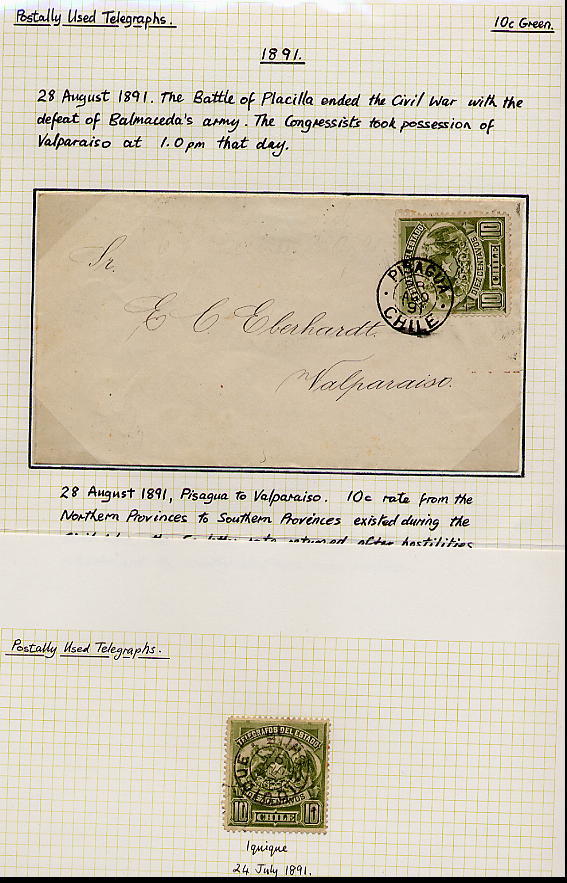 Postally Used Telegraphs.
10c Green.
1891.
28 August 1891. The Battle of Placilla ended the Civil War with the
defeat of Balmaceda's army. The Congressists took possession of
Valparaiso at 1.0 pm that day.
DEL ESTADO
10 CHILE 10
DIEZ CENTAVOS
PISAGUA
CHILE
Sr.
E C Eberhardt.
Valparaiso.
28 August 1891, Pisagua to Valparaiso. 10c rate from the
Northern Provinces to Southern Provinces existed during the
rate returned after hostilities
Postally Used Telegraphs.
TELEGRAFOS DEL ESTADO
DIEZ CENTAVOS
10 CHILE 10
Iquique
24 July 1891.